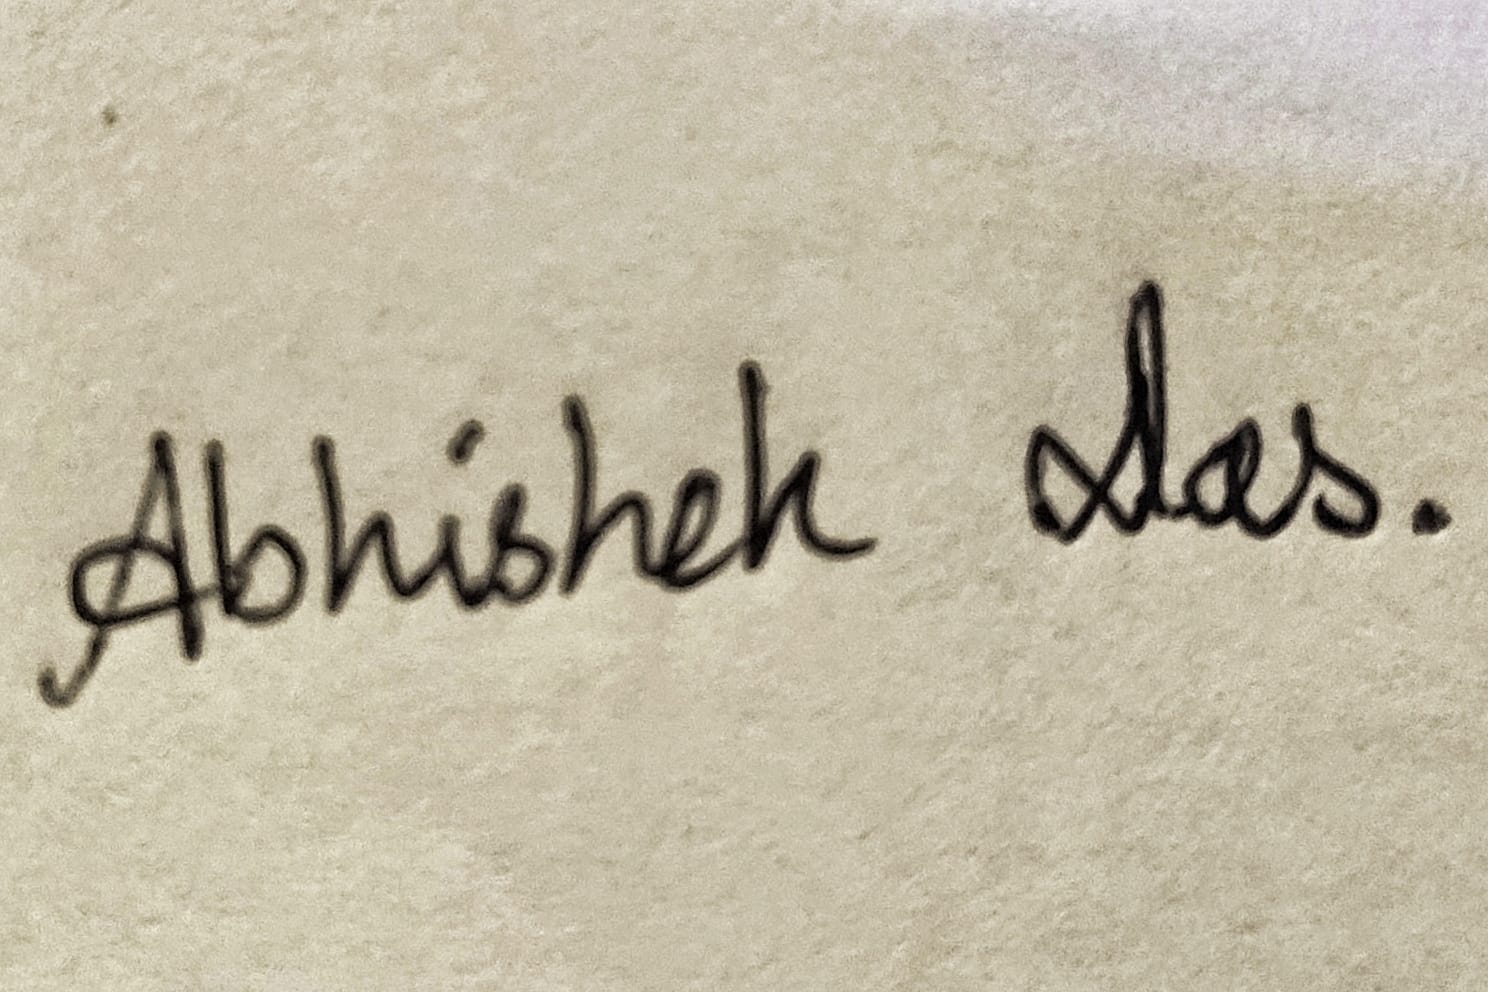 Abhishek Das.